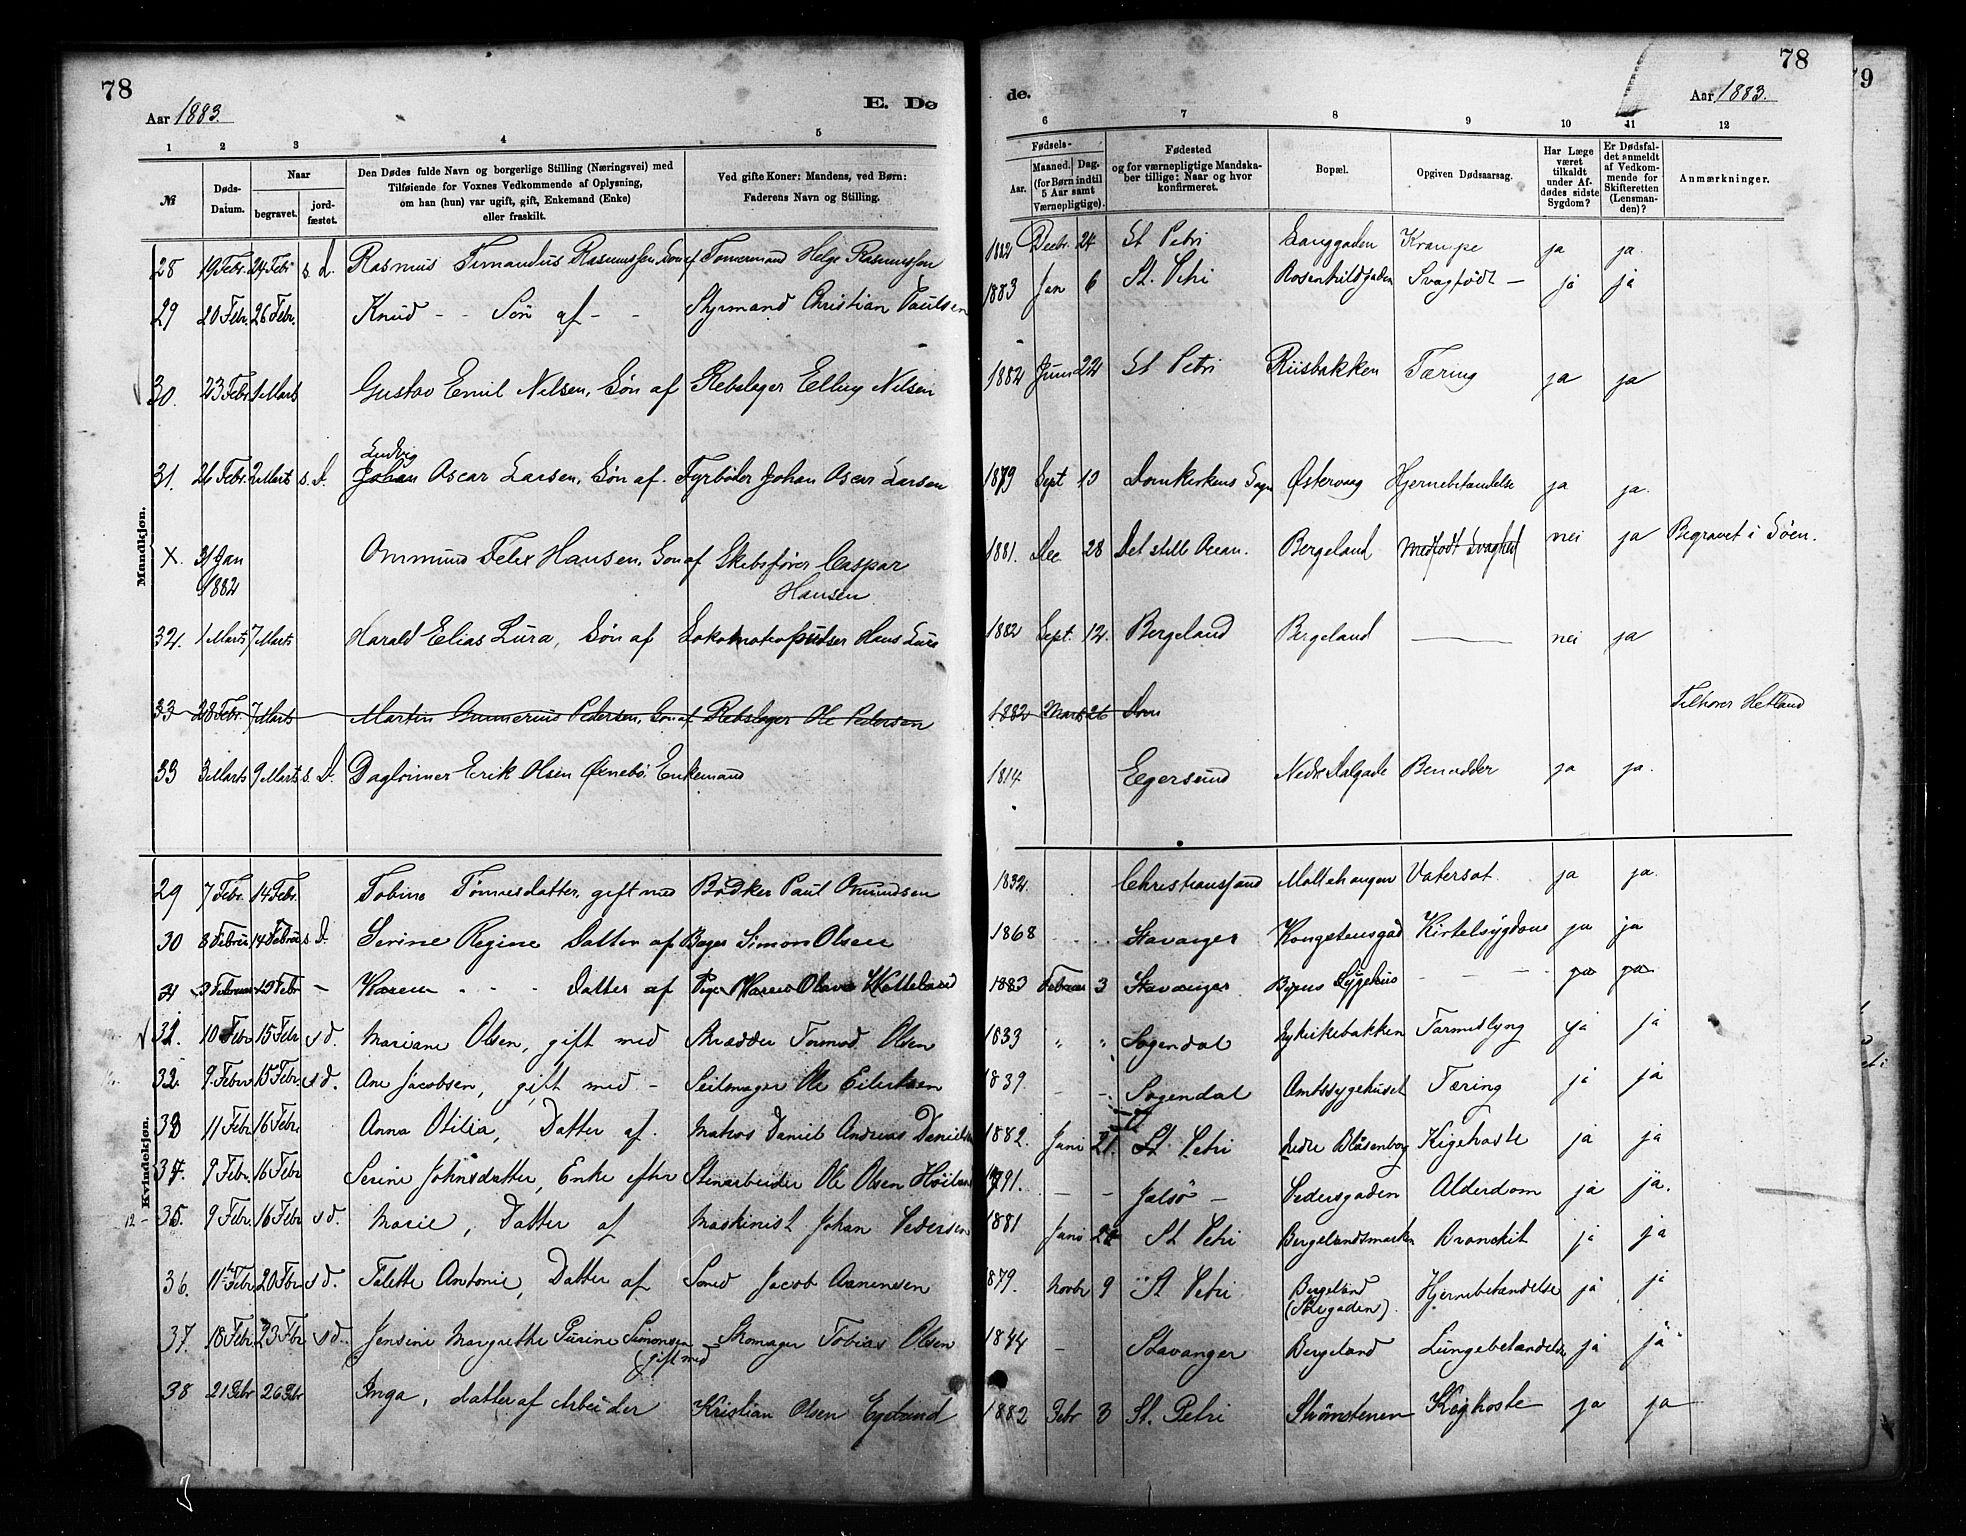 78
Aar 1883.
E. Dø
de.
78
Aar 1883.
79
1 2 3 4 5 6 7 8 9 10 11 12
№
Døds-Datum.
Naar
begravet.
jordfæstet.
Den Dødes fulde Navn og borgerlige Stilling (Næringsvei) med
Tilføiende for Voxnes Vedkommende af Oplysning,
om han (hun) var ugift, gift, Enkemand (Enke)
eller fraskilt.
Ved gifte Koner: Mandens, ved Børn:
Faderens Navn og Stilling.
Fødsels-
Aar.
Maaned. Dag.
(for Børn indtil
5 Aar samt
Værnepligtige).
Fødested
og for værnepligtige Mandskaber tillige: Naar og hvor
konfirmeret.
Bopæl.
Opgiven Dødsaarsag.
Har Læge
været
tilkaldt
under Afdødes sidste
Sygdom?
Er Dødsfaldet anmeldt
af Vedkommende for
Skifteretten
(Lensmanden)?
Anmærkninger.
Mandkjøn.
28 19 Febr. 24 Febr s. d. Rasmus Fernandus Rasmussen Søn af Tømermand Helge Rasmussen 1882 Decbr. 24 St Petri Langgaden Krampe ja ja.
29 20 Febr. 26 Febr. Knud - - Søn af - - Styrmand Christian Paulsen 1883 Jan 6 St. Petri Rosenkildgaden Svagfødt — ja ja
30. 23 Febr. 1 Marts Gustav Emil Nilsen, Søn af Rebslager Elling Nilsen 1882 Juni 24 St Petri Riisbakken Tæring ja ja
Ludvig
31. 26 Febr. 2 Marts s. d. Johan Oscar Larsen, Søn af Fyrbøder Johan Oscar Larsen 1879 Sept 10 Domkirkens Sogn Østervaag Hjernebetændelse ja ja.
X. 31 Jan Ommund Felix Hansen, Søn af Skibsfører Caspar 1881. Dec 28 Det stille Ocean. Bergeland Medfødt Svaghed nei ja Begravet i Søen.
1882 Hansen
32. 1 Marts 7 Marts Harald Elias Lura, Søn af Lokomotivpudser Hans Lura 1882 Sept. 12. Bergeland Bergeland — nei ja
33 28 Febr. 7 Marts Martin Gunnerius Pedersen, Søn af Rebslager Ole Pedersen 1882 Marts 26 Dom Tilhører Hetland
33 3 Marts 9 Marts s. d. Dagleiner Erik Olsen Ørnebø, Enkemand 1814 Egersund Nedr. Dalgade Benødder ja ja.
Kvindekjøn.
29 7 Febr. 14 Febr. Tobine Tønnesdatter, gift med Bødker Paul Omundsen 1832. Christianssand Møllehaugen Vatersot. ja ja.
30 8 Februar 14 Februar s. d. Serine Regine Datter af Bager Simon Olsen 1868 Stavanger Kongstensgad Kirtelsygdom ja ja
31 3 Februar 13 Febr - Karen - - - Datter af Pige Karen Olava Hetteland 1883 Februar 3 Stavanger Byens Sygehus - - - ja ja
31. 10 Febr 15 Febr s d. Mariane Olsen, gift med Skrædder Tormod Olsen 1833 " " Sogendal Nykirkebakken Tarmeslyng ja ja
32. 9. Febr 15 Febr. s d. Ane Jacobsen, gift med - Seilmager Ole Eilertsen 1839. - - Sogendal Amtssygehuset Tæring ja ja
33 11 Febr 16 Febr. Anna Otilia, Datter af. Matros Daniel Andreas Danielsen 1882. Juni 21. St Petri Nedre Blåsenborg Kighoste ja ja
34. 9 Febr. 16 Febr Serine Johnsdatter, Enke efter Stenarbeider Ole Olsen Høiland 1791. - - Jelsø - Pedersgaden Alderdom ja ja.
12 - 35. 9 Febr. 16 Febr s d. Marie, Datter af Maskinist Johan Pedersen 1881 Juni St Petri Bergelandsmarken Bronckit ja ja
36. 11te Febr 20 Febr s d. Talette Antonie, Datter af Smed Jacob Aanensen 1879. Novbr 9 St Petri Bergeland Hjernebetændelse ja ja
37. 18 Febr. 23 Febr s d. Jensine Margrethe Purine Simonsen Skomager Tobias Olsen 1844 - Stavanger Bergeland Lungebetændelse ja ja
gift med
38 21 Febr 26 Febr Inga, datter af Arbeider Kristian Olsen Egeland 1882 Febr 3 St. Petri Strømstenen Kighoste ja ja